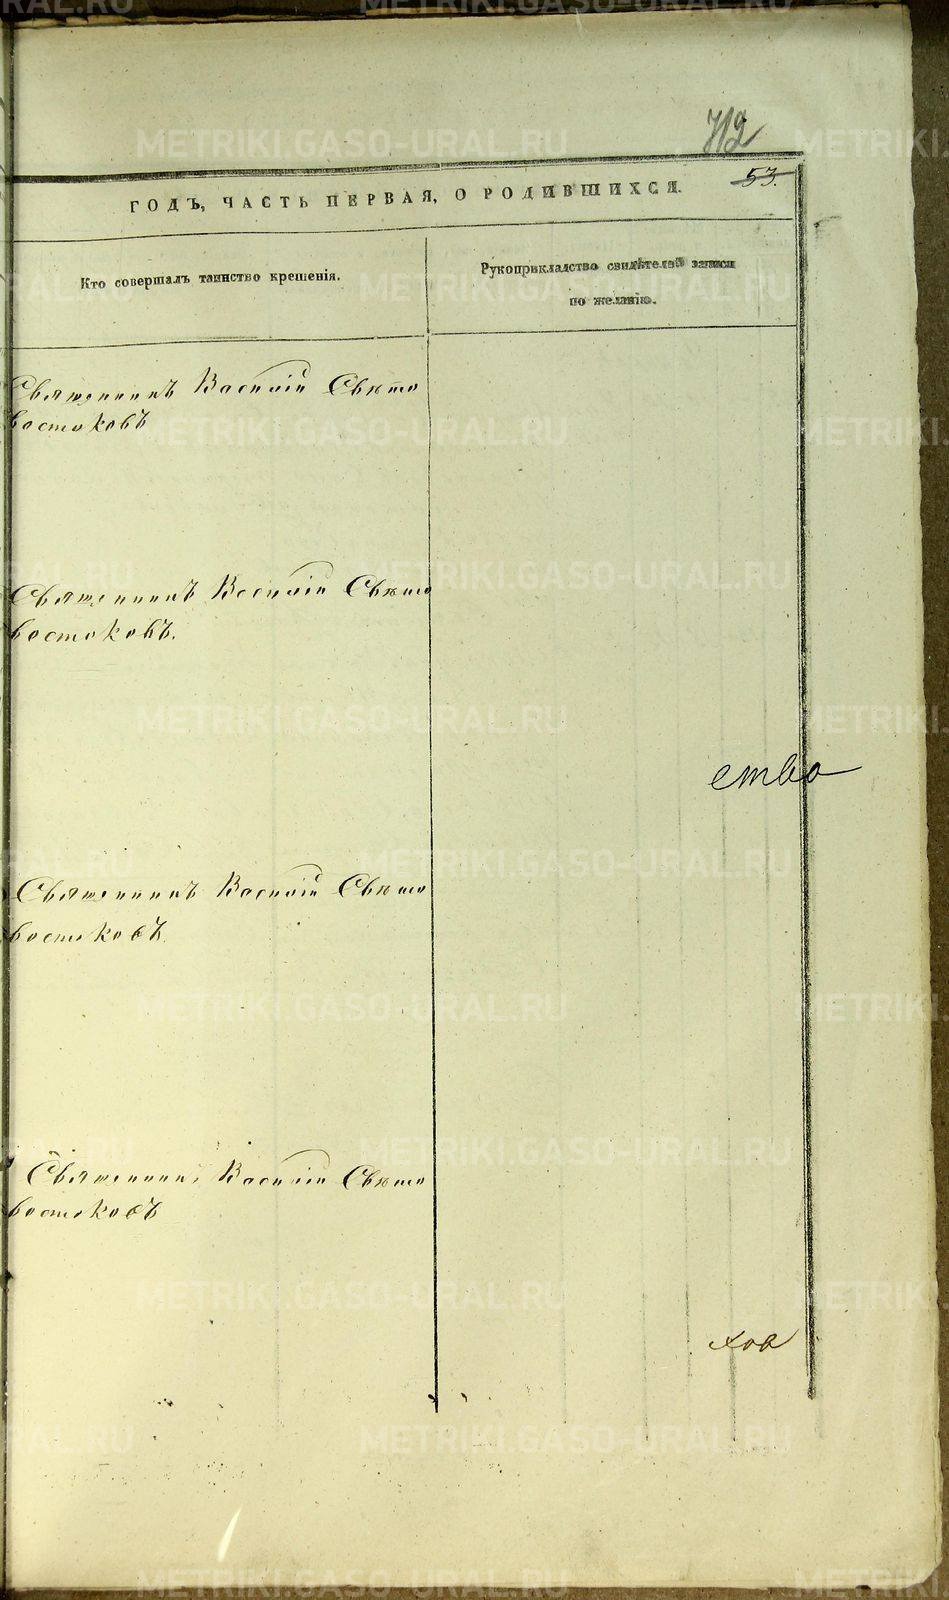 712
53.
ГОДЪ, ЧАСТЬ ПЕРВАЯ, О РОДИВШИХСЯ.
Кто совершалъ таинство крещенія.
Рукоприкладство свидѣтелей записи
по желанію.
Священникъ Василій Свѣто
востоковъ
Священникъ Василій Свѣто
востоковъ.
ство
Священникъ Василій Свѣто
востоковъ
Священникъ Василій Свѣто
востоковъ
хов
METRIKI.GASO-URAL.RU